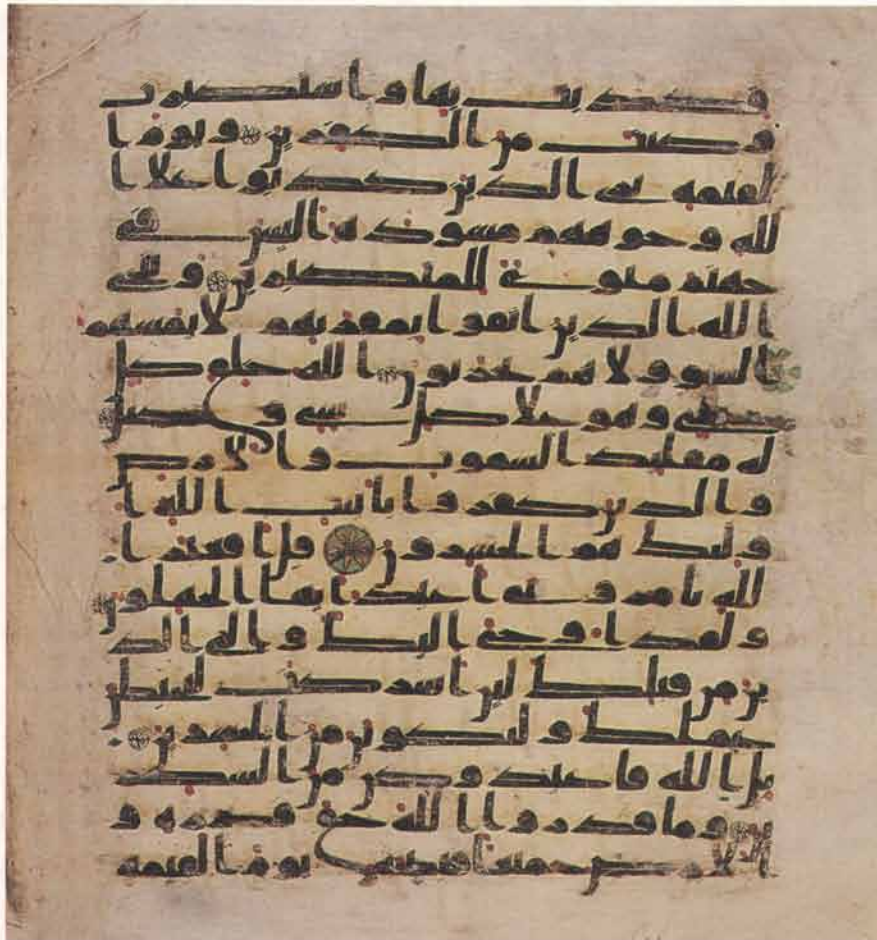 فكذبت بها واستكبرت
وكنت من الكفرين ويوم ا
لقيمة ترى الذين كذبوا على ا
لله وجوههم مسودة اليس في
جهنم مثوى للمتكبرين وينجى
الله الذين اتقوا بمفازتهم لا يمسهم
السو ولا هم يحزنون الله خلق كل
شى وهو على كل شى وكيل
له مقليد السموت والارض
والذين كفروا بايت الله ا
ولئك هم الخسرون قل افغير ا
لله تامروني اعبد ايها الجهلون
ولقد اوحى اليك والى الذ
ين من قبلك لئن اشركت ليحبطن
عملك ولتكونن من الخسرين
بل الله فاعبد وكن من الشكر
ين وما قدروا الله حق قدره و
الارض جميعا قبضته يوم القيمة